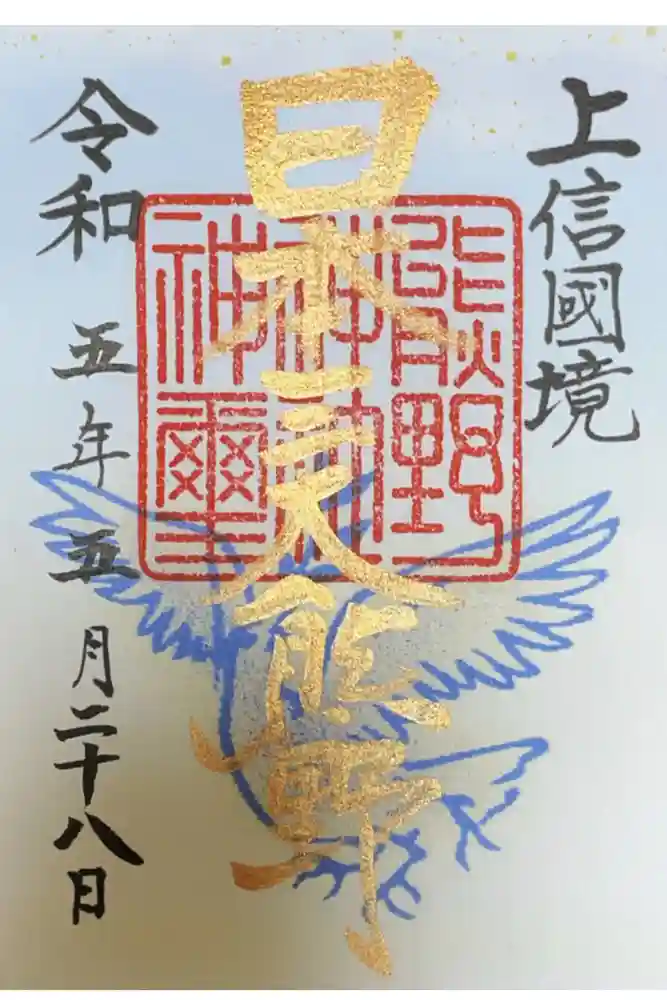 上信國境
日本三大熊野
熊野
神璽
令和五年五月二十八日